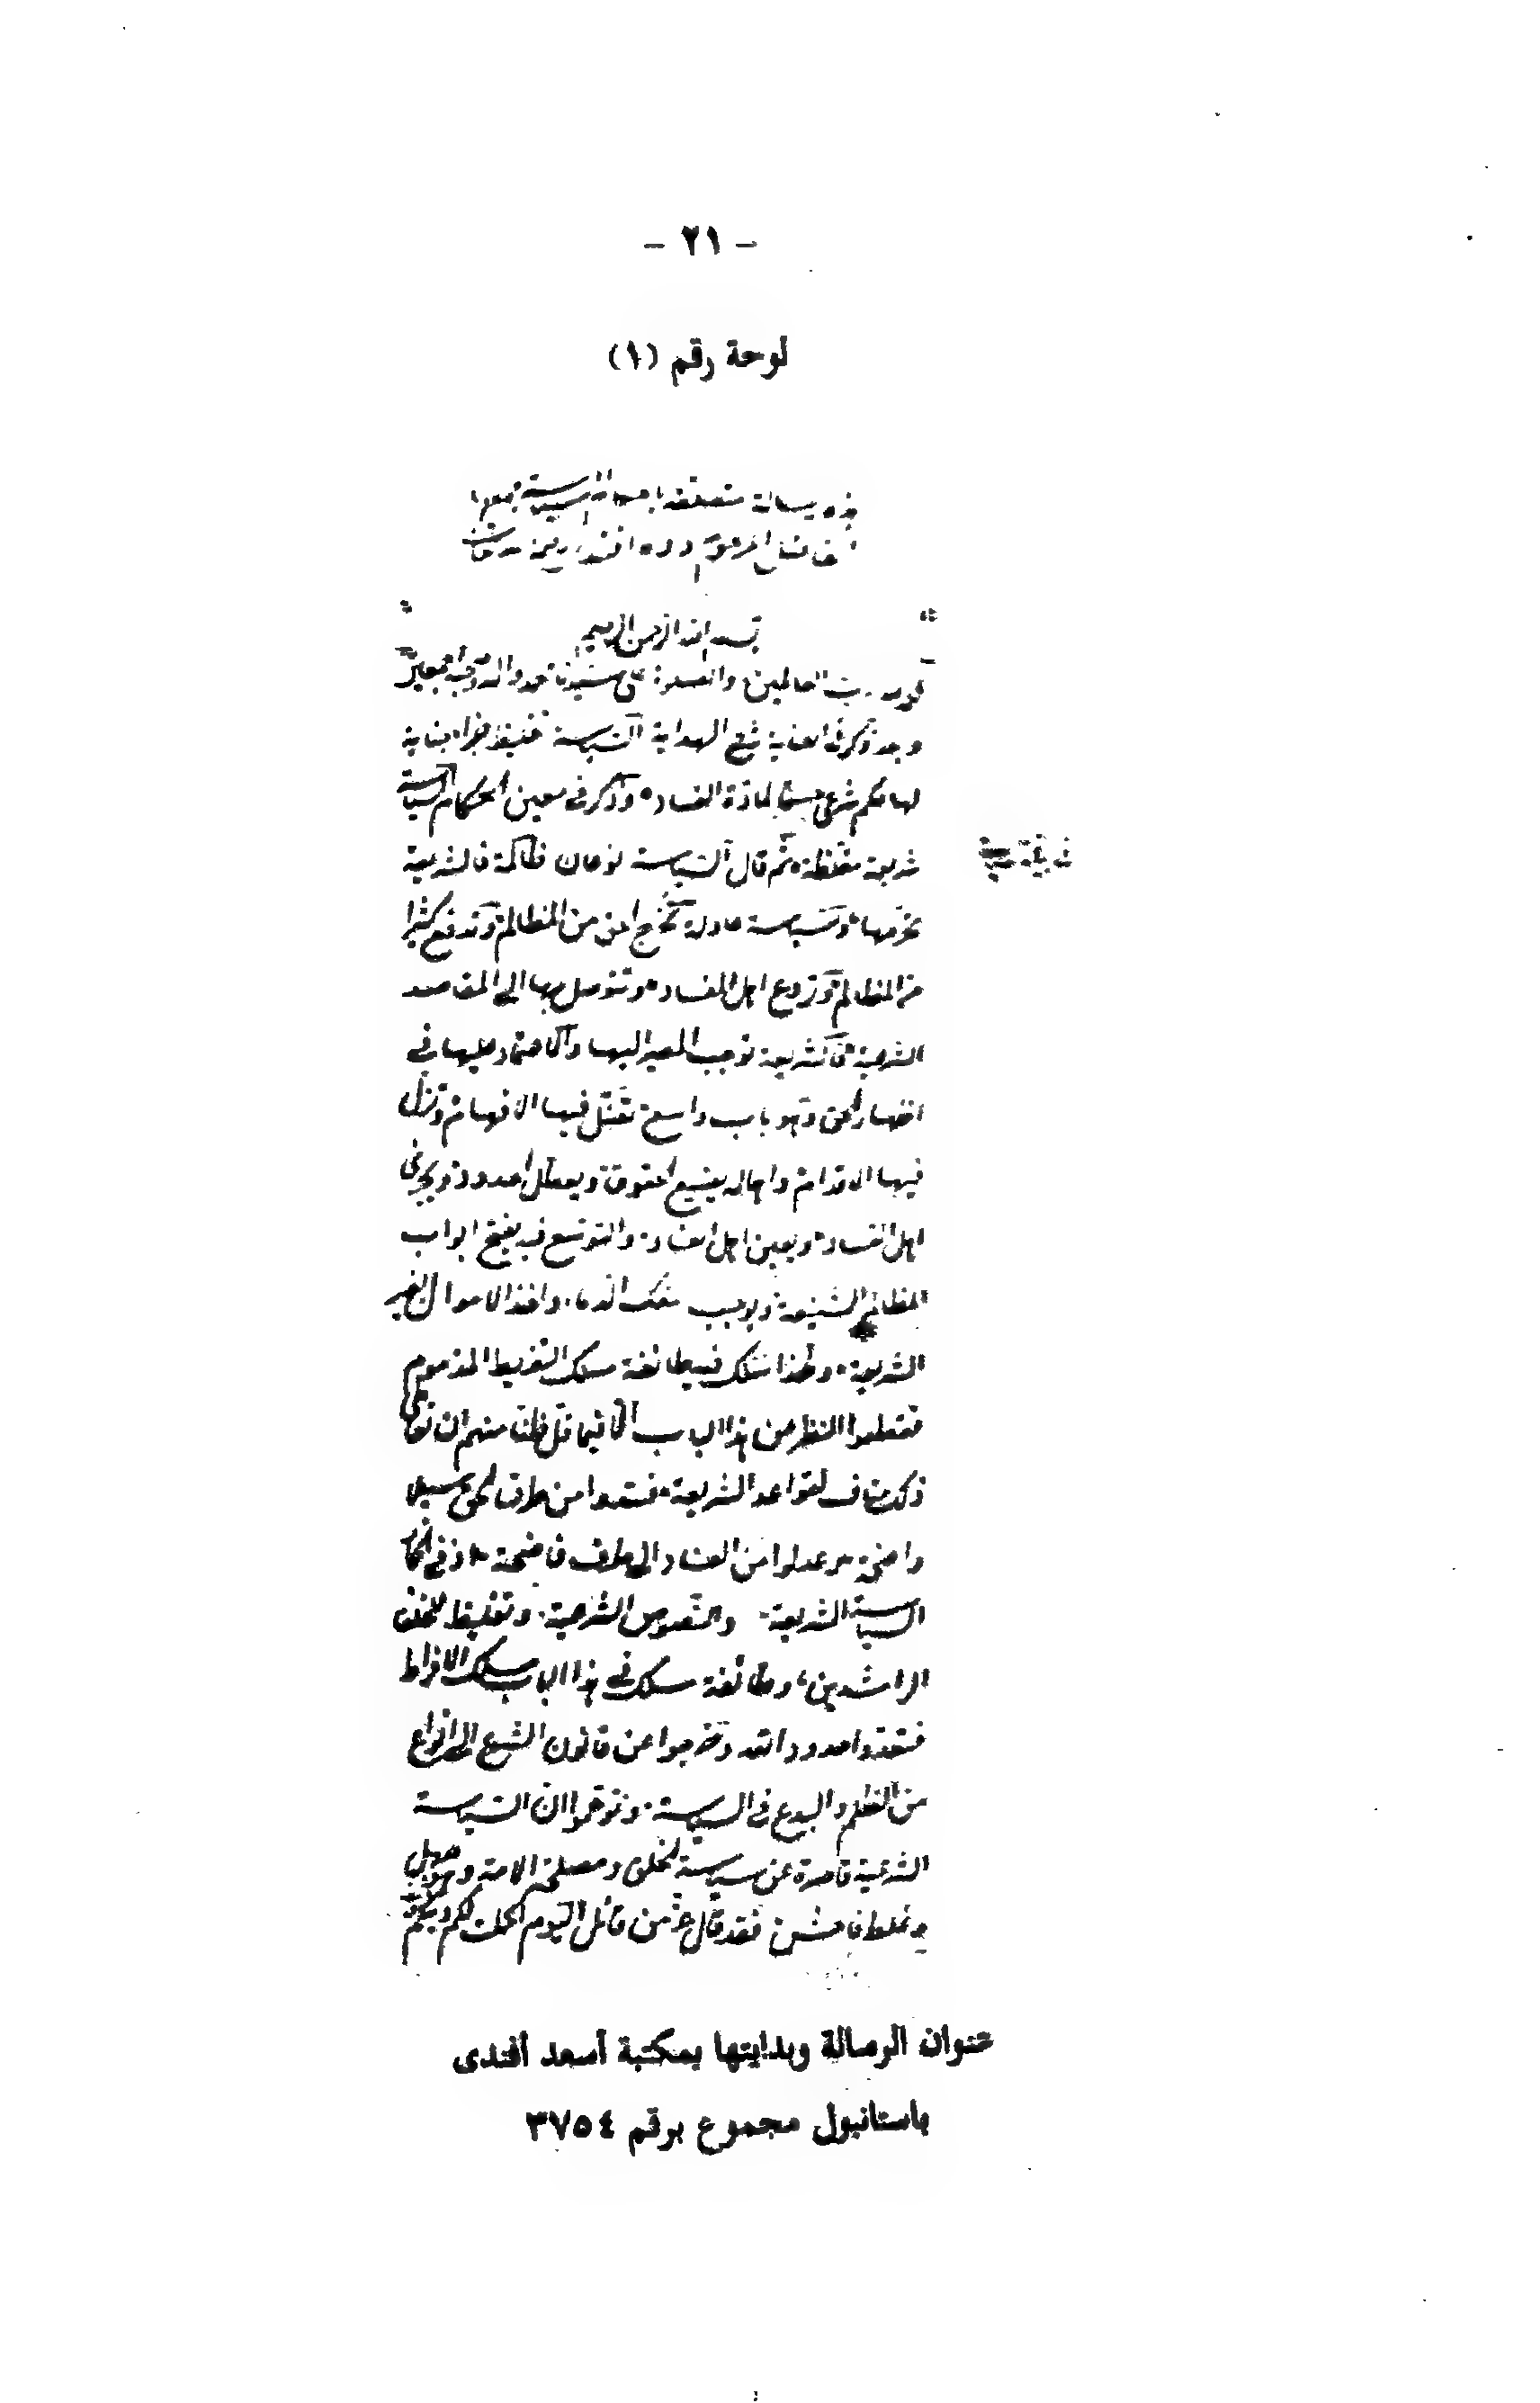 - ٢١ -
لوحة رقم (١)
هذه رسالة متعلقة السياسة جمعها
المرحوم دده افندى
بسم الله الرحمن الرحيم
رب العالمين والصلوة على سيدنا محمد واله وصحبه اجمعين
وبعد ذكر فى العناية شرح الهداية السياسة تغليظ جزاء جناية
لها حكم شرعى حسما لمادة الفساد وذكر فى معين الحكام السياسة
شريعة مغلظة ثم قال السياسة نوعان ظالمة فالشريعة
تحرمها وسياسة عادلة تخرج الحق من المظالم وتدفع كثيرا
من المظالم وتردع اهل الفساد وتتوصل بها الى المقاصد
الشرعية فالشريعة توجب المصير اليها والاعتماد عليها فى
اظهار الحق وهو باب واسع تضل فيها الافهام وتزل
فيها الاقدام واهماله يضيع الحقوق ويعطل الحدود ويجرئ
اهل الفساد ويعين اهل العناد والتوسع فيه يفتح ابواب
المظالم الشنيعة ويوجب سفك الدماء واخذ الاموال الغير
الشريعة ولهذا سلك فيه طائفة مسلك التفريط المذموم
فقطعوا النظر عن هذا الباب الا فيما قل ظنا منهم ان تعاطى
ذلك مناف لقواعد الشريعة فسدوا من طرق الحق سبيلا
واضحة وعدلوا من العناد الى طرف فاضحة اذ فى انكار
السياسة الشريعة والنصوص الشرعية وتغليط للخلفاء
الراشدين وطائفة سلك فى هذا الباب مسلك الافراط
فتعدوا حدود الله وخرجوا عن قانون الشرع الى انواع
من الظلم والبدع فى السياسة وتوهموا ان السياسة
الشرعية قاصرة عن سياسة الخلق ومصلحة الامة وهو جهل
وغلط فاحش فقد قال عز من قائل اليوم اكملت لكم دينكم
عنوان الرسالة وبدايتها بمكتبة أسعد أفندى
باستانبول مجموع برقم ٣٧٥٤